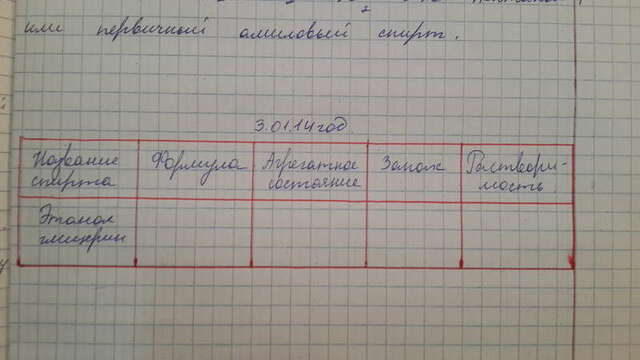 или первичный амиловый спирт.
3.01.14год.
Название спирта
Формула
Агрегатное состояние
Запах
Раствори-
мость
Этанол
глицерин